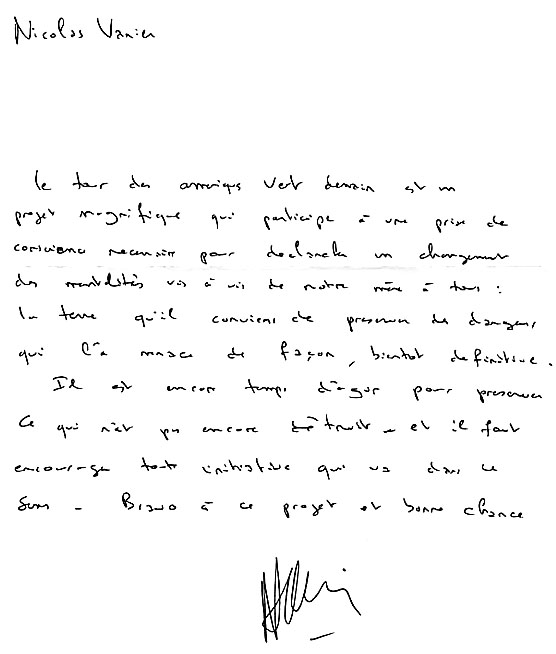 Nicolas Vanier
Le tour des amériques Vert demain est un
projet magnifique qui participe à une prise de
conscience nécessaire pour déclancher un changement
des mentalités vis à vis de notre mère à tous :
la terre qu'il convient de préserver des dangers
qui l'a menace de façon, bientot définitive.
Il est encore temps d'agir pour préserver
ce qui n'est pas encore détruit - et il faut
encourager toute initiative qui va dans ce
sens - Bravo à ce projet et bonne chance